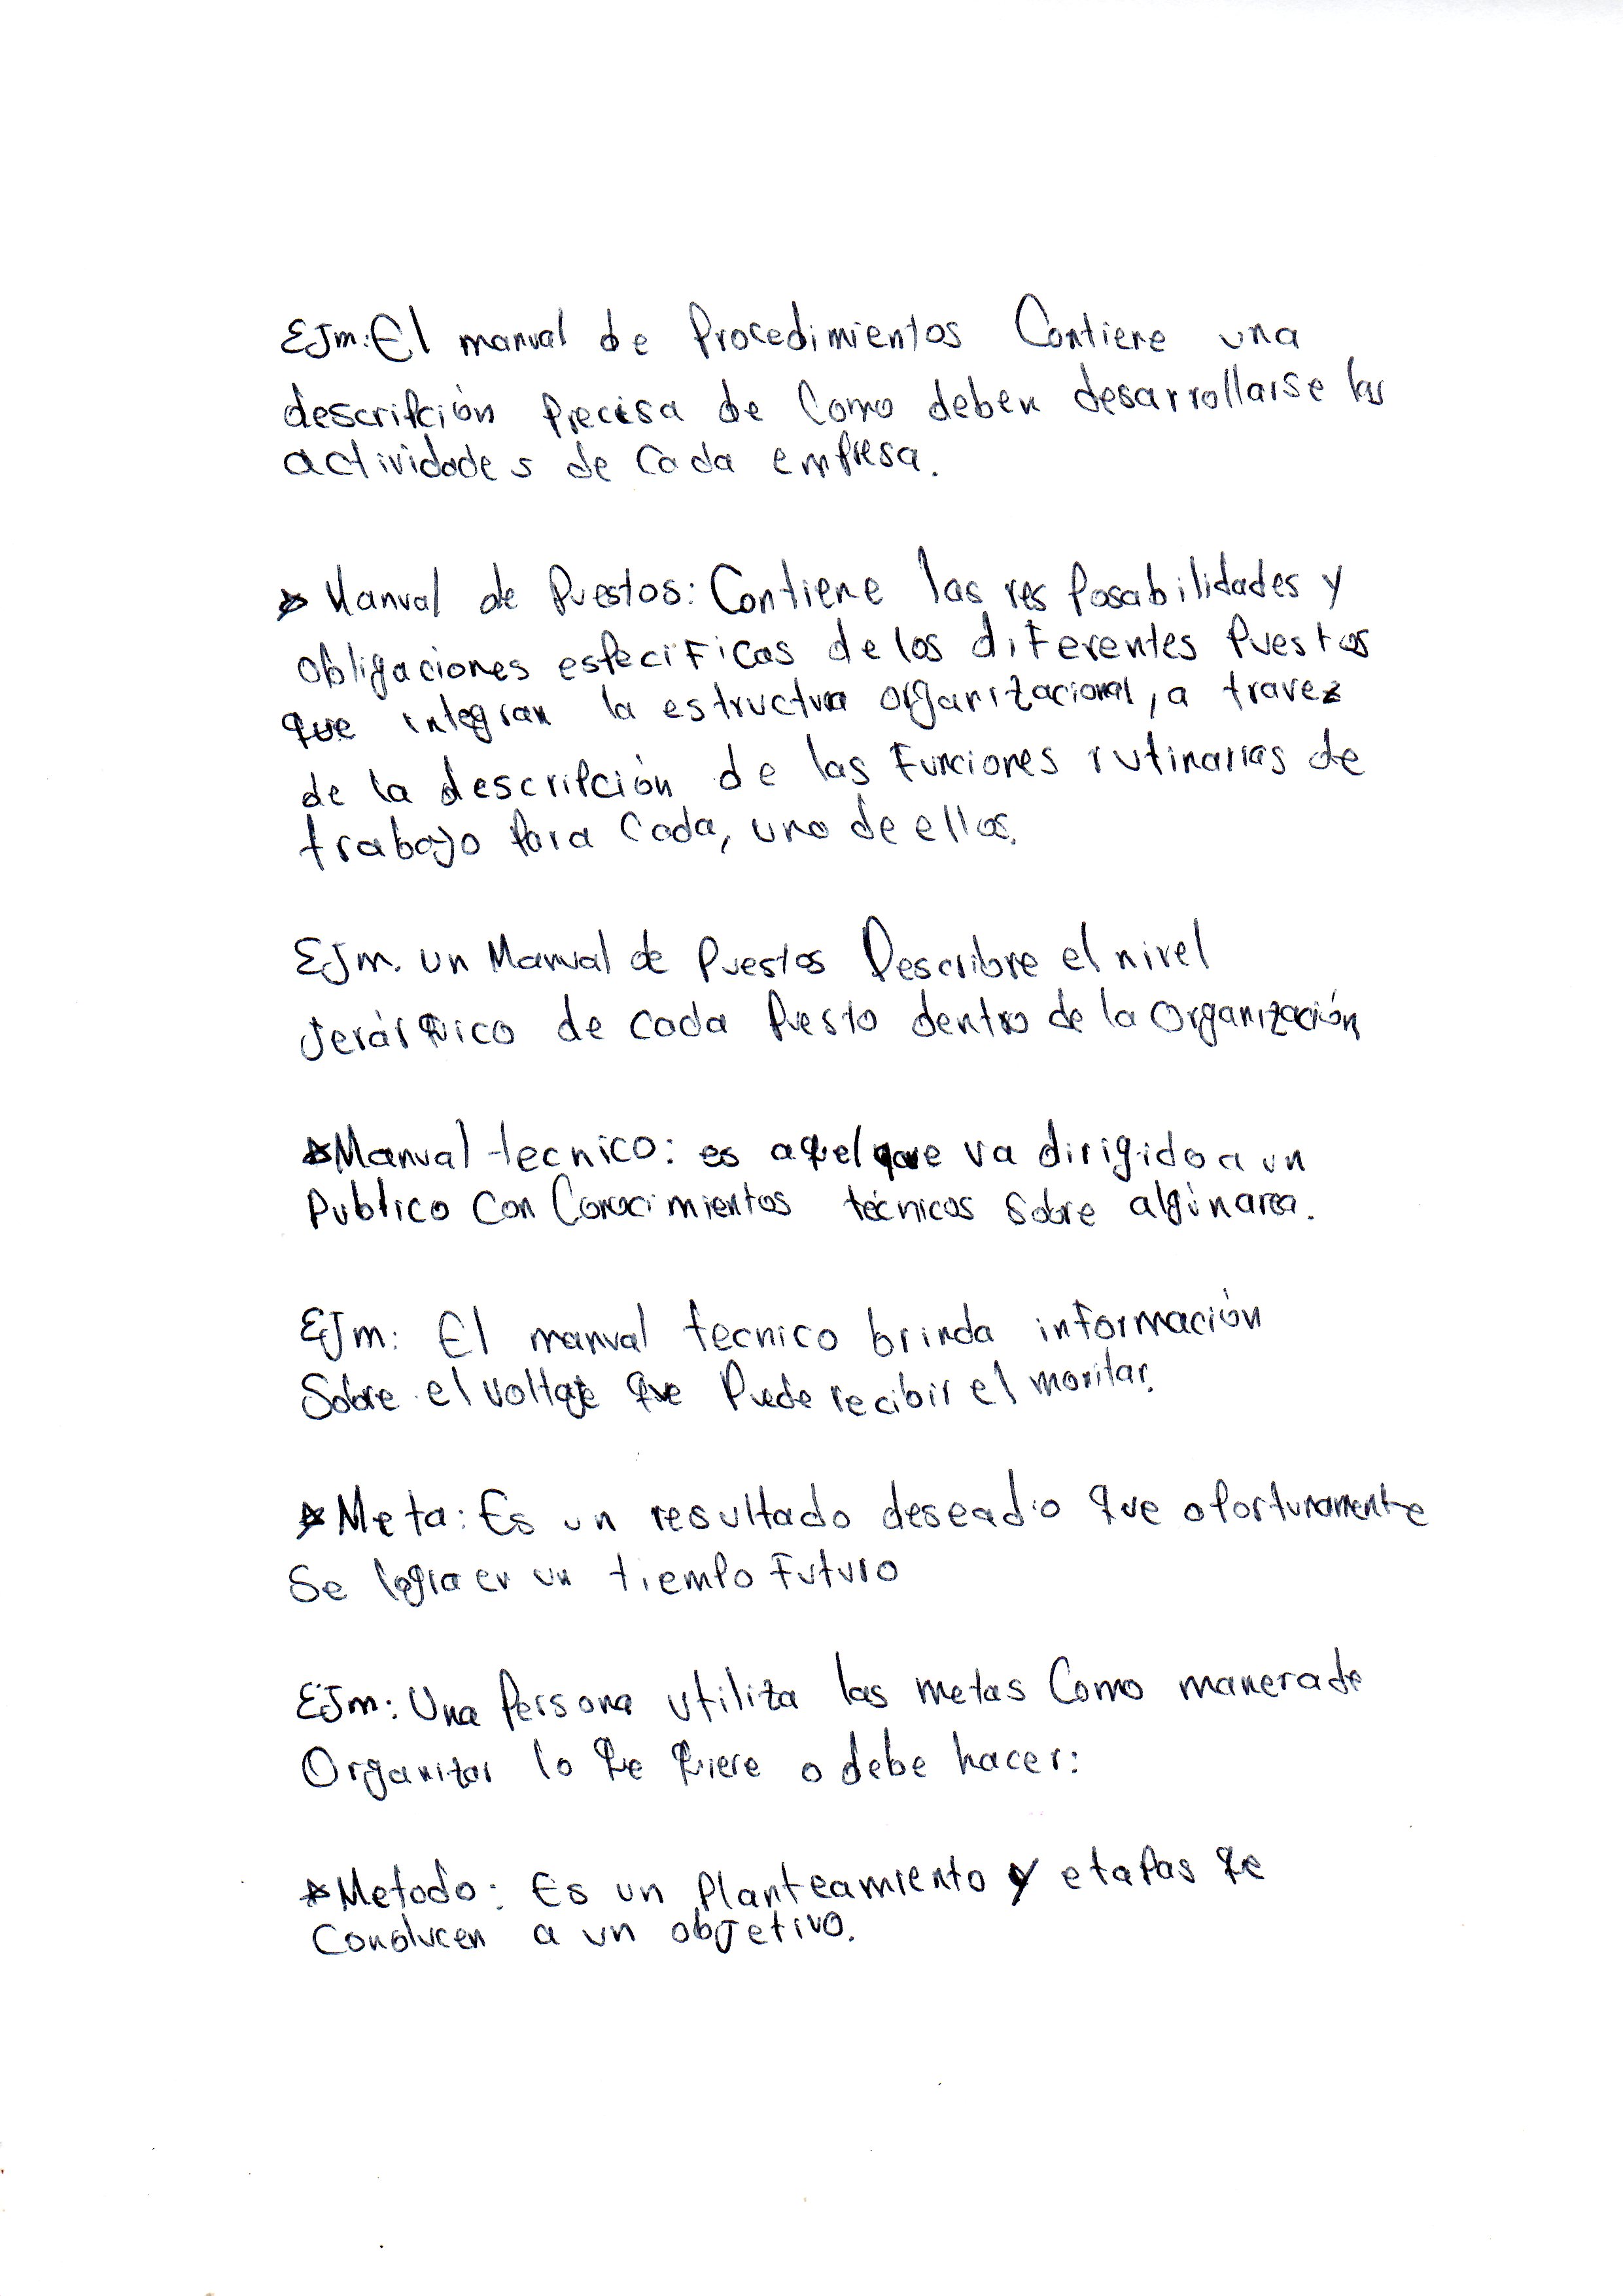 EJm: El manual de Procedimientos Contiene una
descripción Precisa de Como deben desarrollarse las
actividades de Cada empresa.
* Manual de Puestos: Contiene las resposabilidades y
obligaciones especificas de los diferentes Puestos
que integran la estructura organizacional, a travez
de la descripción de las Funciones rutinarias de
trabajo Para Cada, uno de ellos.
EJm. un Manual de Puestos Describre el nivel
Jerárquico de cada Puesto dentro de la Organización
* Manual tecnico: es aquel que va dirigido a un
Publico Con Conocimientos técnicos Sobre algún area.
EJm: El manual tecnico brinda información
Sobre el voltaje que Puede recibir el monitar.
* Meta: Es un resultado deseado que oportunamente
Se logra en un tiempo Futuro
EJm: Una Persona utiliza las metas Como manera de
Organizar lo que quiere o debe hacer:
* Metodo: Es un Planteamiento y etapas qe
Conducen a un objetivo.